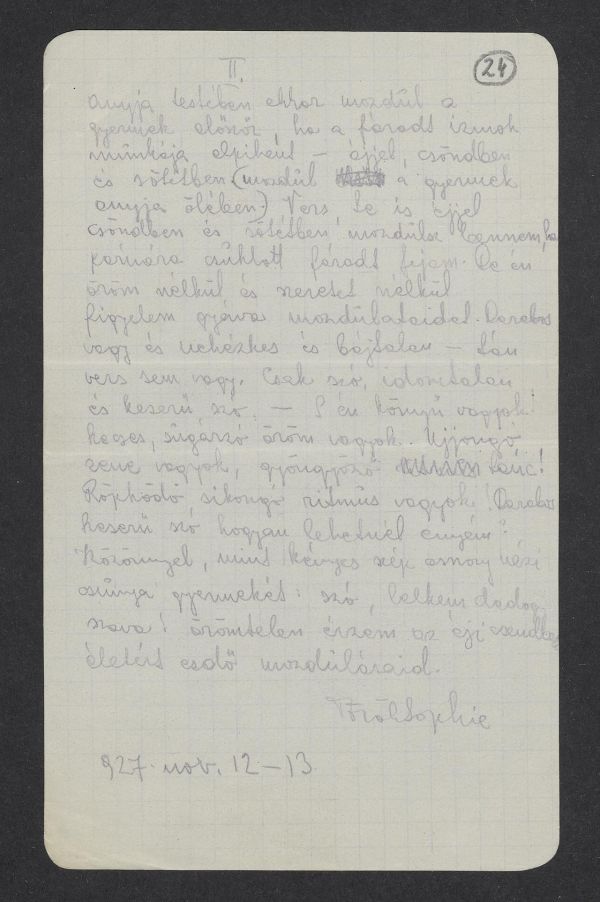 II.
24
anyja testében akkor mozdúl a
gyermek először, ha a fáradt izmok
munkája elpihent — éjjel, csöndben
és sötétben (mozdúl a gyermek
anyja ölében.) Vers te is éjjel
csöndben és sötétben mozdúlsz bennem, ha
párnára csuklott fáradt fejem. De én
öröm nélkül és szeretet nélkül
figyelem gyáva mozdúlataidat. Darabos
vagy és nehézkes és bájtalan — tán
vers sem vagy. Csak szó, idomtalan
és keserű szó. — S én könnyű vagyok
kecses, sugárzó öröm vagyok. Ujjongó
zene vagyok, gyöngyöző tánc!
Röpködő sikongó ritmus vagyok! Darabos
keserű szó hogyan lehetnél enyém?
Közönnyel, mint kényes szép asszony nézi
csúnya gyermekét: szó, lelkem dadogó
szava! örömtelen érzem az éji csendben
életért esdő mozdúlásaid.
Török Sophie
927. nov. 12–13